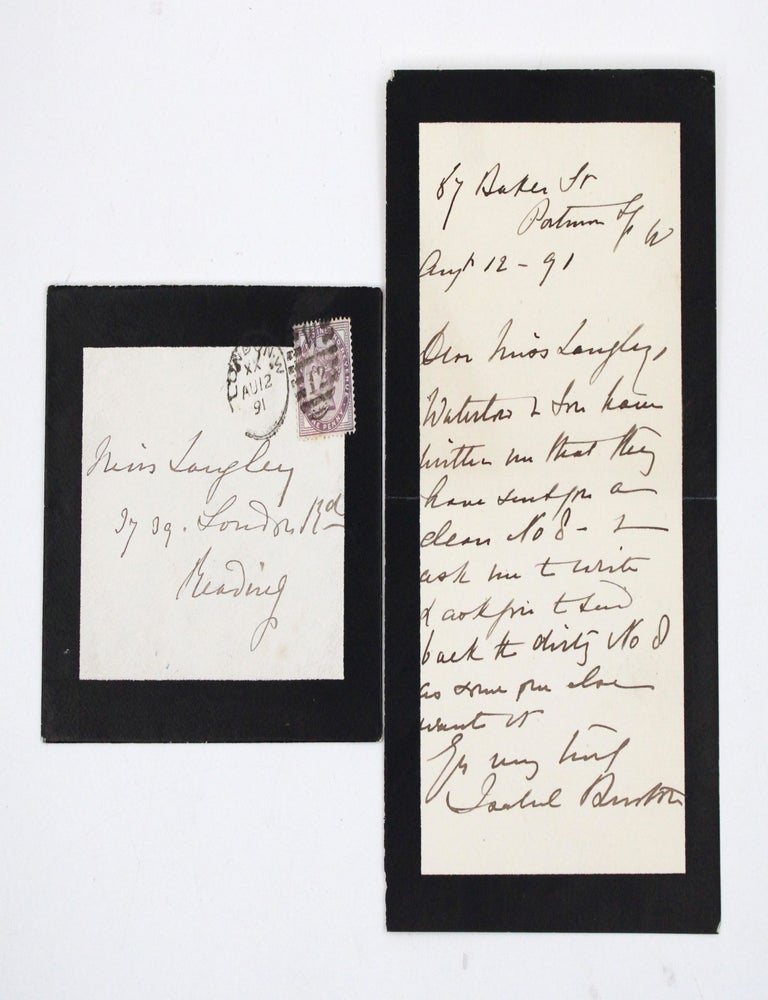 LONDON.N.W
XX
AU12
91
Miss Langley
London Rd
Reading
67 Baker St
Portman Sq W
Augt 12 - 91
Dear Miss Langley,
Waterlow & Son have
written me that they
have sent you a
clean No 8 - &
ask me to write
& ask you to send
back the dirty No 8
as some one else
wants it
Yrs very truly
Isabel Burton